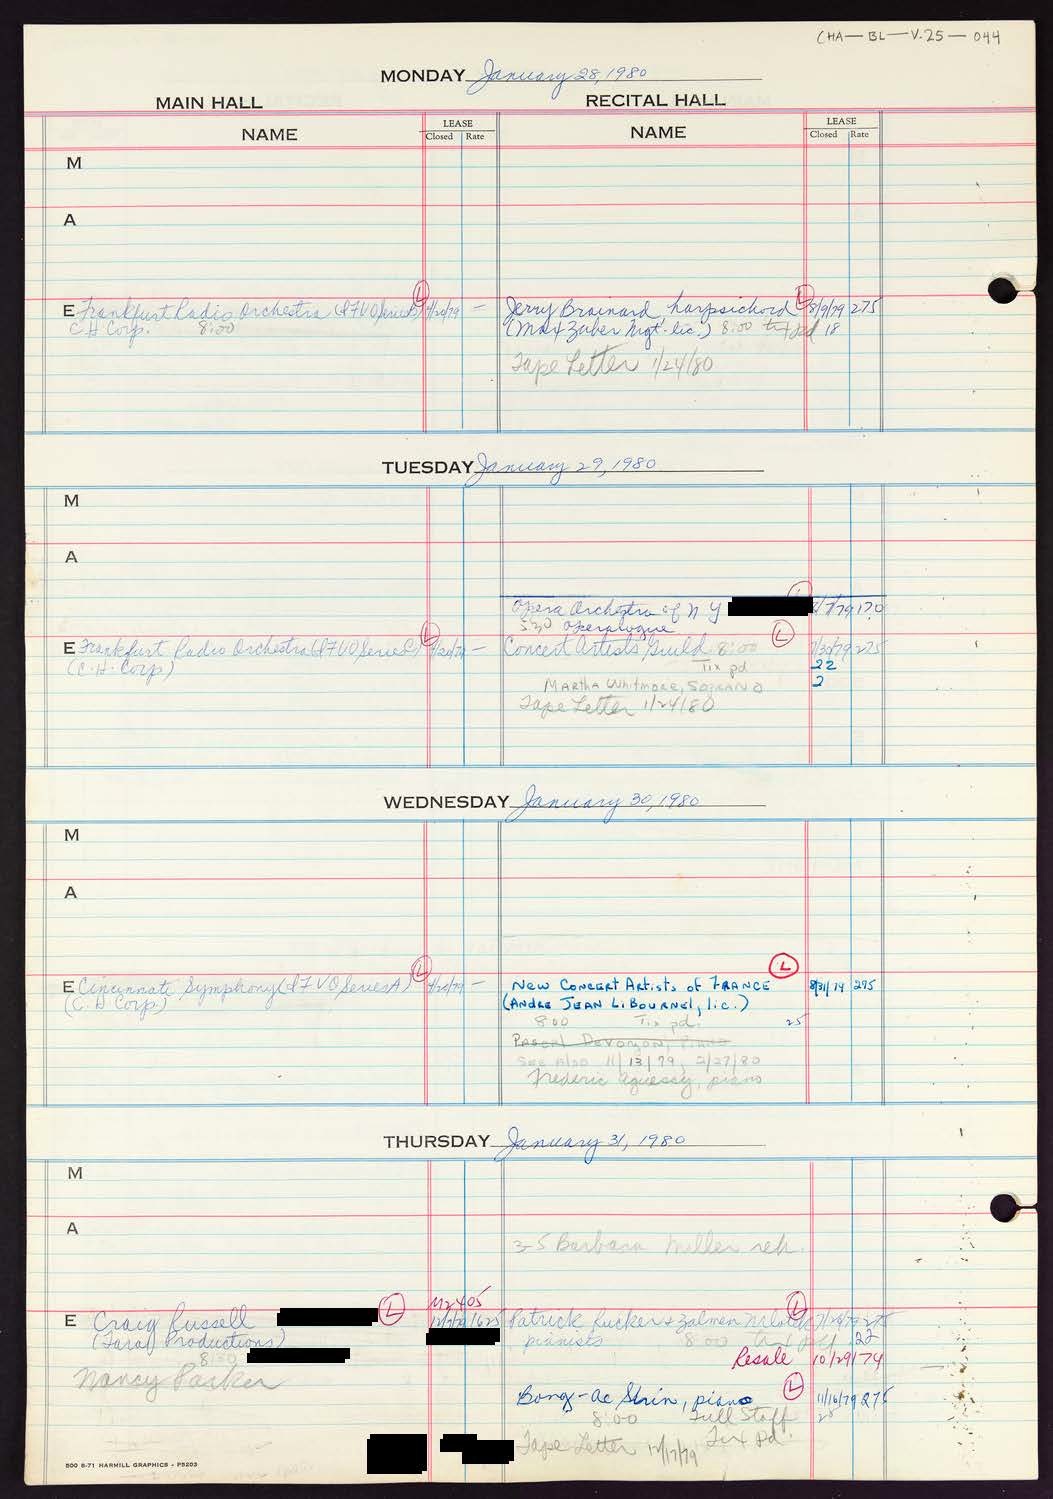 CHA-BL-V.25-044
MONDAY January 28, 1980
MAIN HALL RECITAL HALL
NAME LEASE Closed Rate NAME LEASE Closed Rate
M
A
E Frankfurt Radio Orchestra (IFVO Series B) L 4/20/79 —
C H Corp. 8:00
Jerry Brainard, harpsichord L 8/9/79 275
8:00 tix pd 18
Tape Letter 1/24/80
TUESDAY January 29, 1980
M
A
Opera Orchestra of N Y 170
530 Operalogue
E Frankfurt Radio Orchestra (IFVO Series C) L 4/20/79 —
(C.H. Corp)
Concert Artists Guild 8:00 L 7/30/79 275
Tix pd 22
Martha Whitmore, Soprano 2
Tape Letter 1/24/80
WEDNESDAY January 30, 1980
M
A
E Cincinnati Symphony (IFVO Series A) L 4/20/79 —
(C.H Corp.)
New Concert Artists of France L 8/31/79 275
(Andre Jean LiBournel, lic.)
8:00 Tix pd. 25
Pascal Devoyon, Piano
See also 11/13/79, 2/27/80
Frederic Aguessy, piano
THURSDAY January 31, 1980
M
A
3-5 Barbara Miller reh.
E Craig Russell L
(Taral Productions)
8:00
Nancy Parker
M2405
Patrick Rucker + Zalmen Mlotek L 275
pianists 8:00 tix pd 22
Resale 10/29/74
Bong-Ae Shin, piano L 11/16/79 275
8:00 Full Staff
Tape Letter 12/17/79 Tix Pd.
500 8-71 HARMILL GRAPHICS - P5203